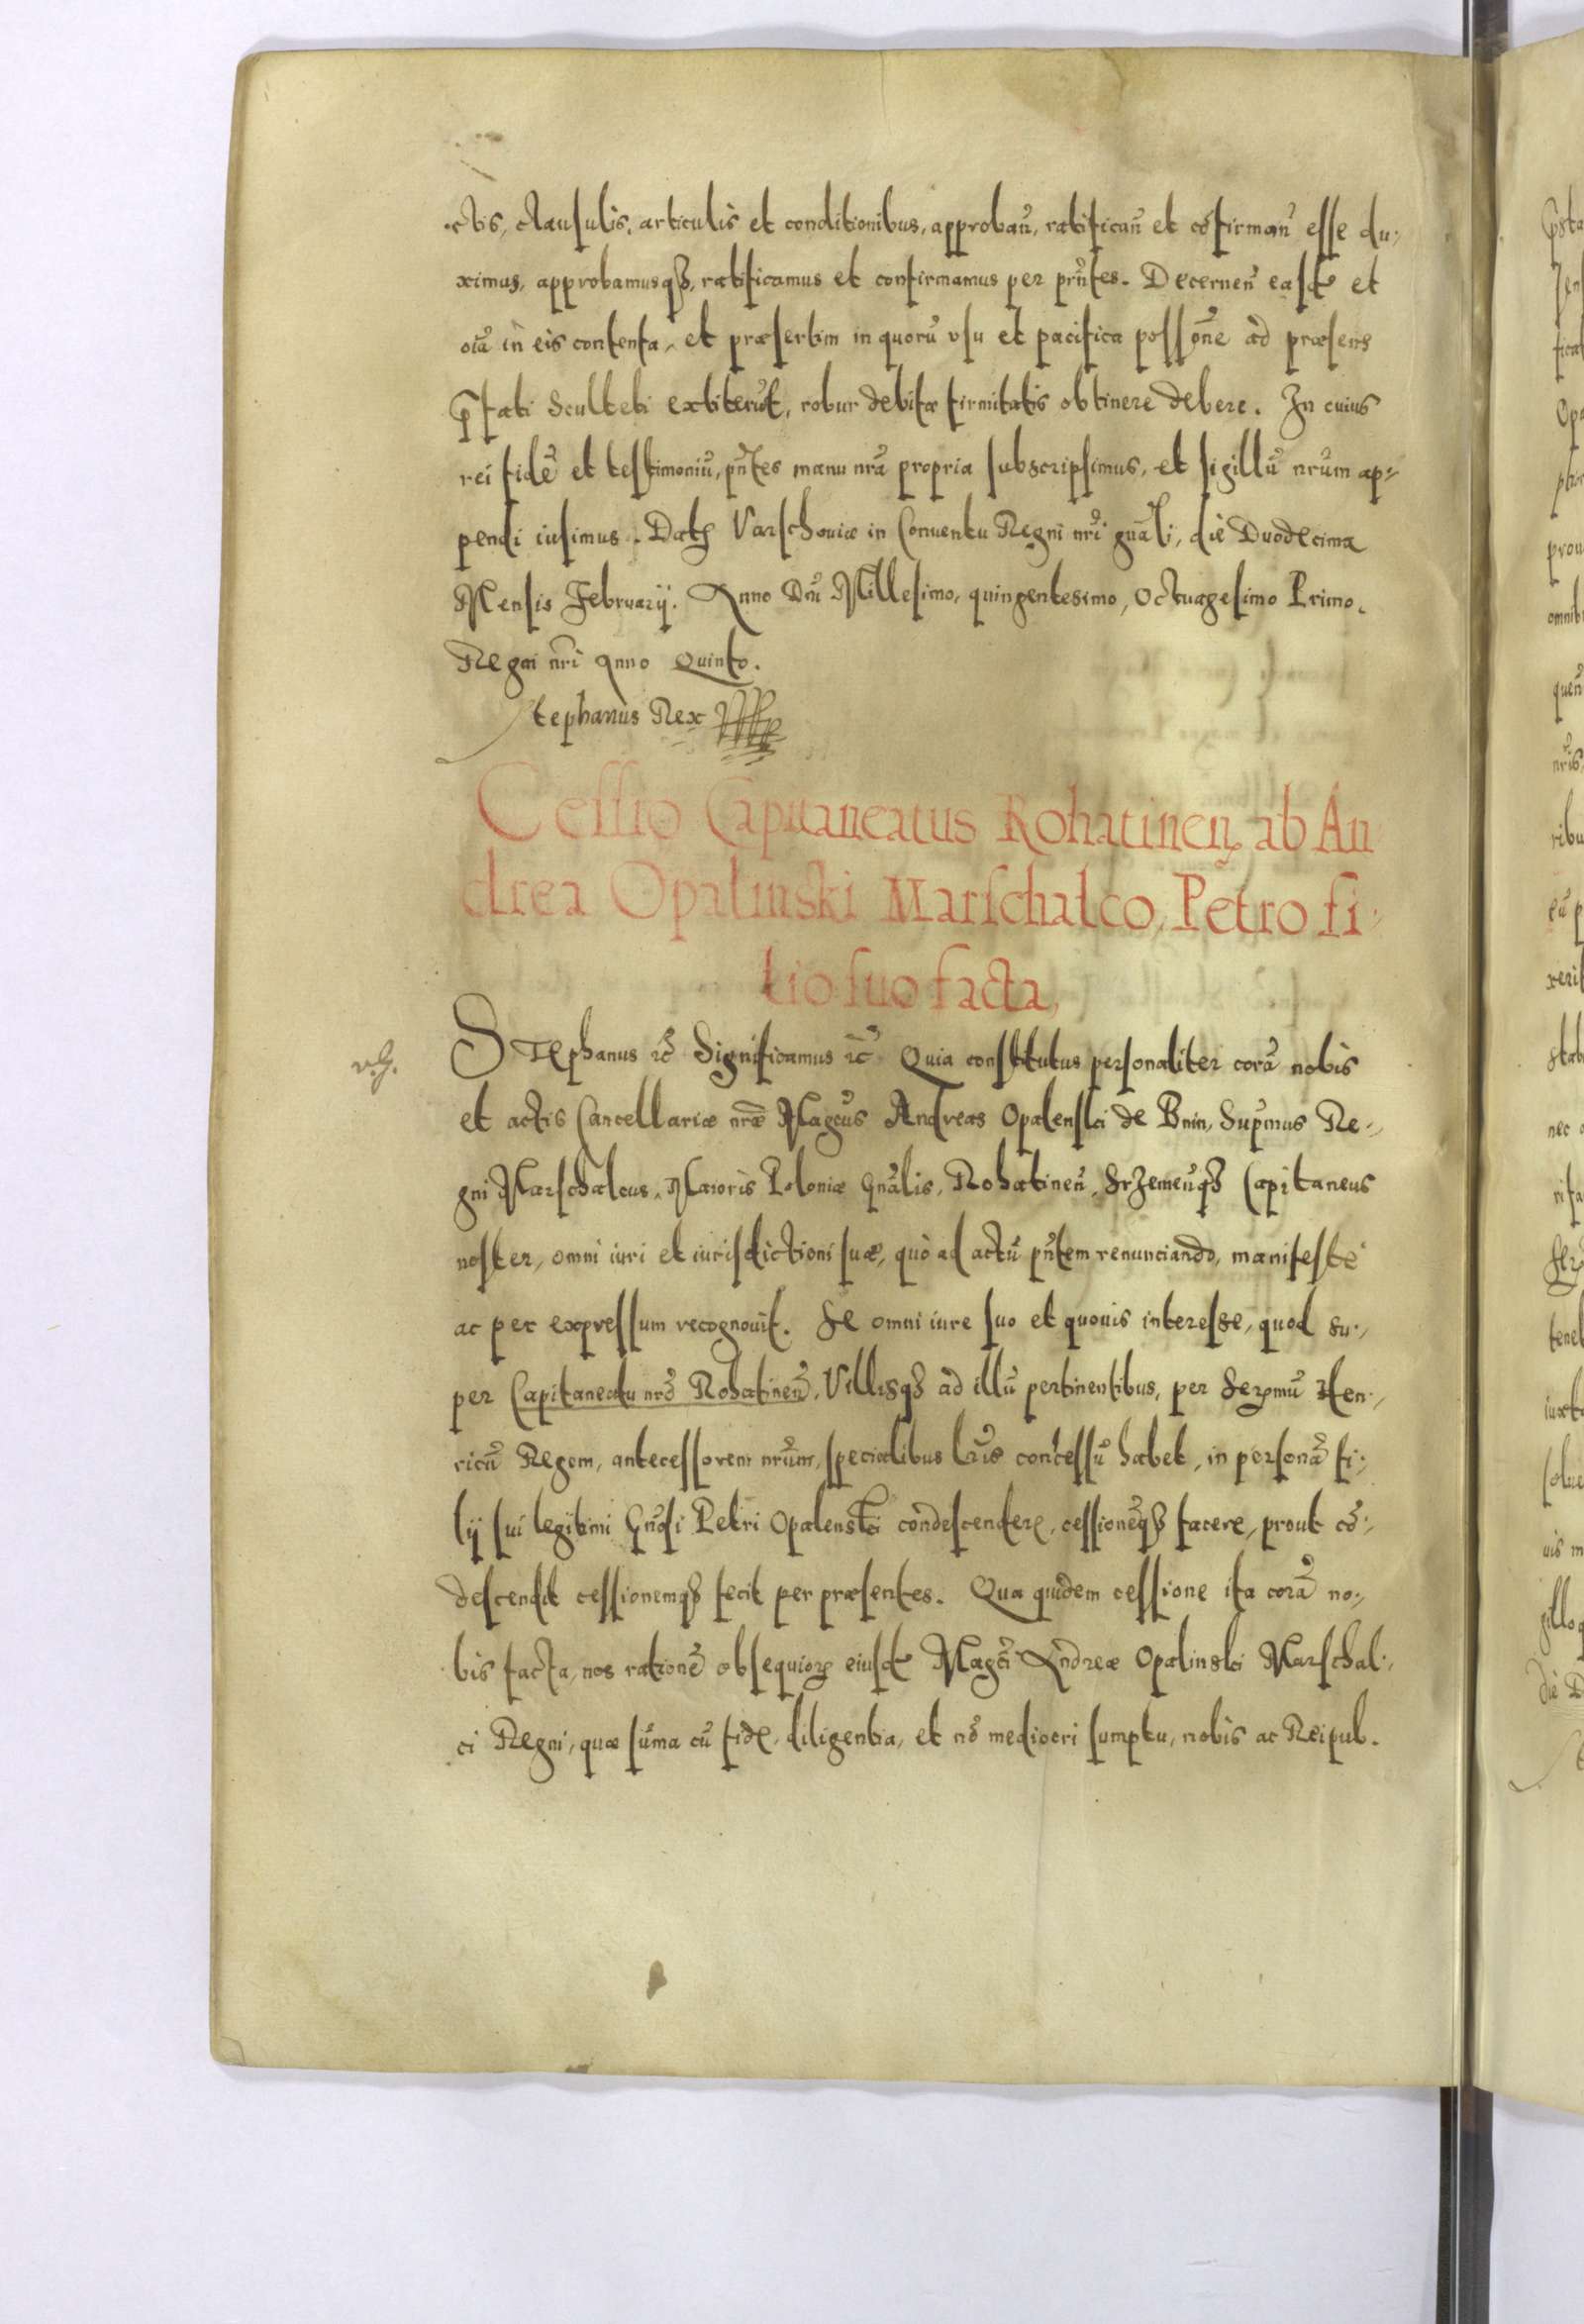 ctis, clausulis, articulis et conditionibus, approbañ, ratificañ et cõfirmañ esse du⸗
ximus, approbamusqꝫ, ratificamus et confirmamus per pñtes. Decerneñ easd̃ et
oĩa in eis contenta, et præsertim in quorũ vsu et pacifica possõne ad præsens
p̃fati Sculteti extiterũt, robur debitæ firmitatis obtinere debere. In cuius
rei fidẽ et testimoniũ, pñtes manu nr̃a propria subscripsimus, et sigillũ nr̃um ap⸗
pendi iusimus. Datꝭ Varschouiæ in Conuentu Regni nr̃i gñali, die Duodecima
Mensis Februarij. Anno Dñi Millesimo, quingentesimo, Octuagesimo Primo.
Regni nr̃i Anno Quinto.
Stephanus Rex
Cessio Capitaneatus Rohatineñ ab An
drea Opalinski Marschalco, Petro fi⸗
lio suo facta,
STephanus ꝛc̃ Significamus ꝛc̃ Quia constitutus personaliter corã nobis
et actis Cancellariæ nr̃æ Magcus Andreas Opalenski de Bnin, Supm̃us Re⸗
gni Marschalcus, Maioris Poloniæ Gñalis, Rohatineñ, Srzemeñqꝫ Capitaneus
noster, omni iuri et iurisdictioni suæ, quò ad actũ pñtem renunciando, manifestè
ac per expressum recognouit. Se omni iure suo et quouis interesse, quod su⸗
per Capitaneatu nr̃o Rohatineñ, Villisqꝫ ad illũ pertinentibus, per Serꝫmũ Hen⸗
ricũ Regem, antecessorem nr̃um, specialibus lr̃is concessũ habet, in personã fi⸗
lij sui legitimi Gñosi Petri Opalenski condescendere, cessionẽqꝫ facere, prout cõ⸗
descendit cessionemqꝫ fecit per præsentes. Qua quidem cessione ita corã no⸗
bis facta, nos rationẽ obsequioꝝ eiusd̃ Magci Andreæ Opalinski Marschal⸗
ci Regni, quæ sũma cũ fide, diligentia, et nõ mediocri sumptu, nobis ac Reipub.